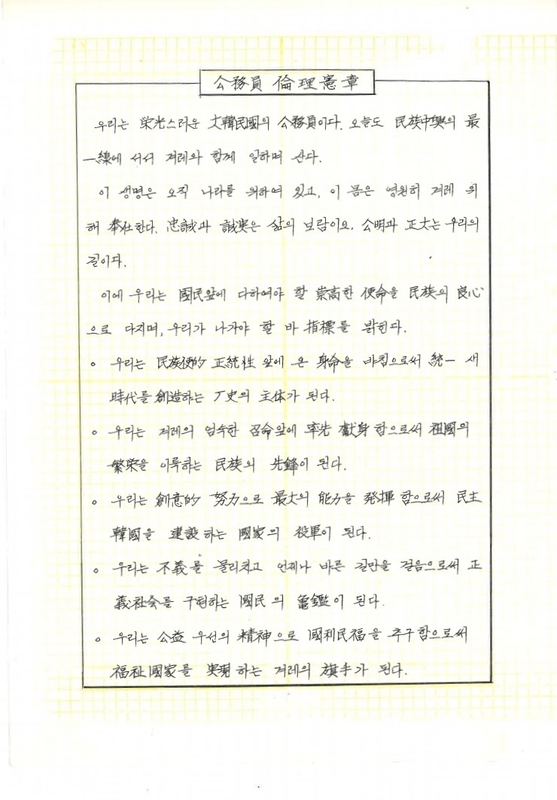 公務員 倫理憲章
우리는 榮光스러운 大韓民國의 公務員이다. 오늘도 民族中興의 最
一線에 서서 겨레와 함께 일하며 산다.
이 생명은 오직 나라를 위하여 있고, 이 몸은 영원히 겨레 위
해 奉仕한다. 忠誠과 誠実은 삶의 보람이요, 公明과 正大는 우리의
길이다.
이에 우리는 國民앞에 다하여야 할 崇高한 使命을 民族의 良心
으로 다지며, 우리가 나가야 할 바 指標를 밝힌다.
○ 우리는 民族史的 正統性 앞에 온 身命을 바침으로써 統一 새
時代를 創造하는 厂史의 主体가 된다.
○ 우리는 겨레의 엄숙한 召命앞에 率先 獻身함으로써 祖國의
繁栄을 이룩하는 民族의 先鋒이 된다.
○ 우리는 創意的 努力으로 最大의 能力을 発揮함으로써 民主
韓國을 建設하는 國家의 役軍이 된다.
○ 우리는 不義를 물리치고 언제나 바른 길만을 걸음으로써 正
義社会를 구현하는 國民의 龜鑑이 된다.
○ 우리는 公益 우선의 精神으로 國利民福을 추구함으로써
福祉國家를 実現하는 겨레의 旗手가 된다.